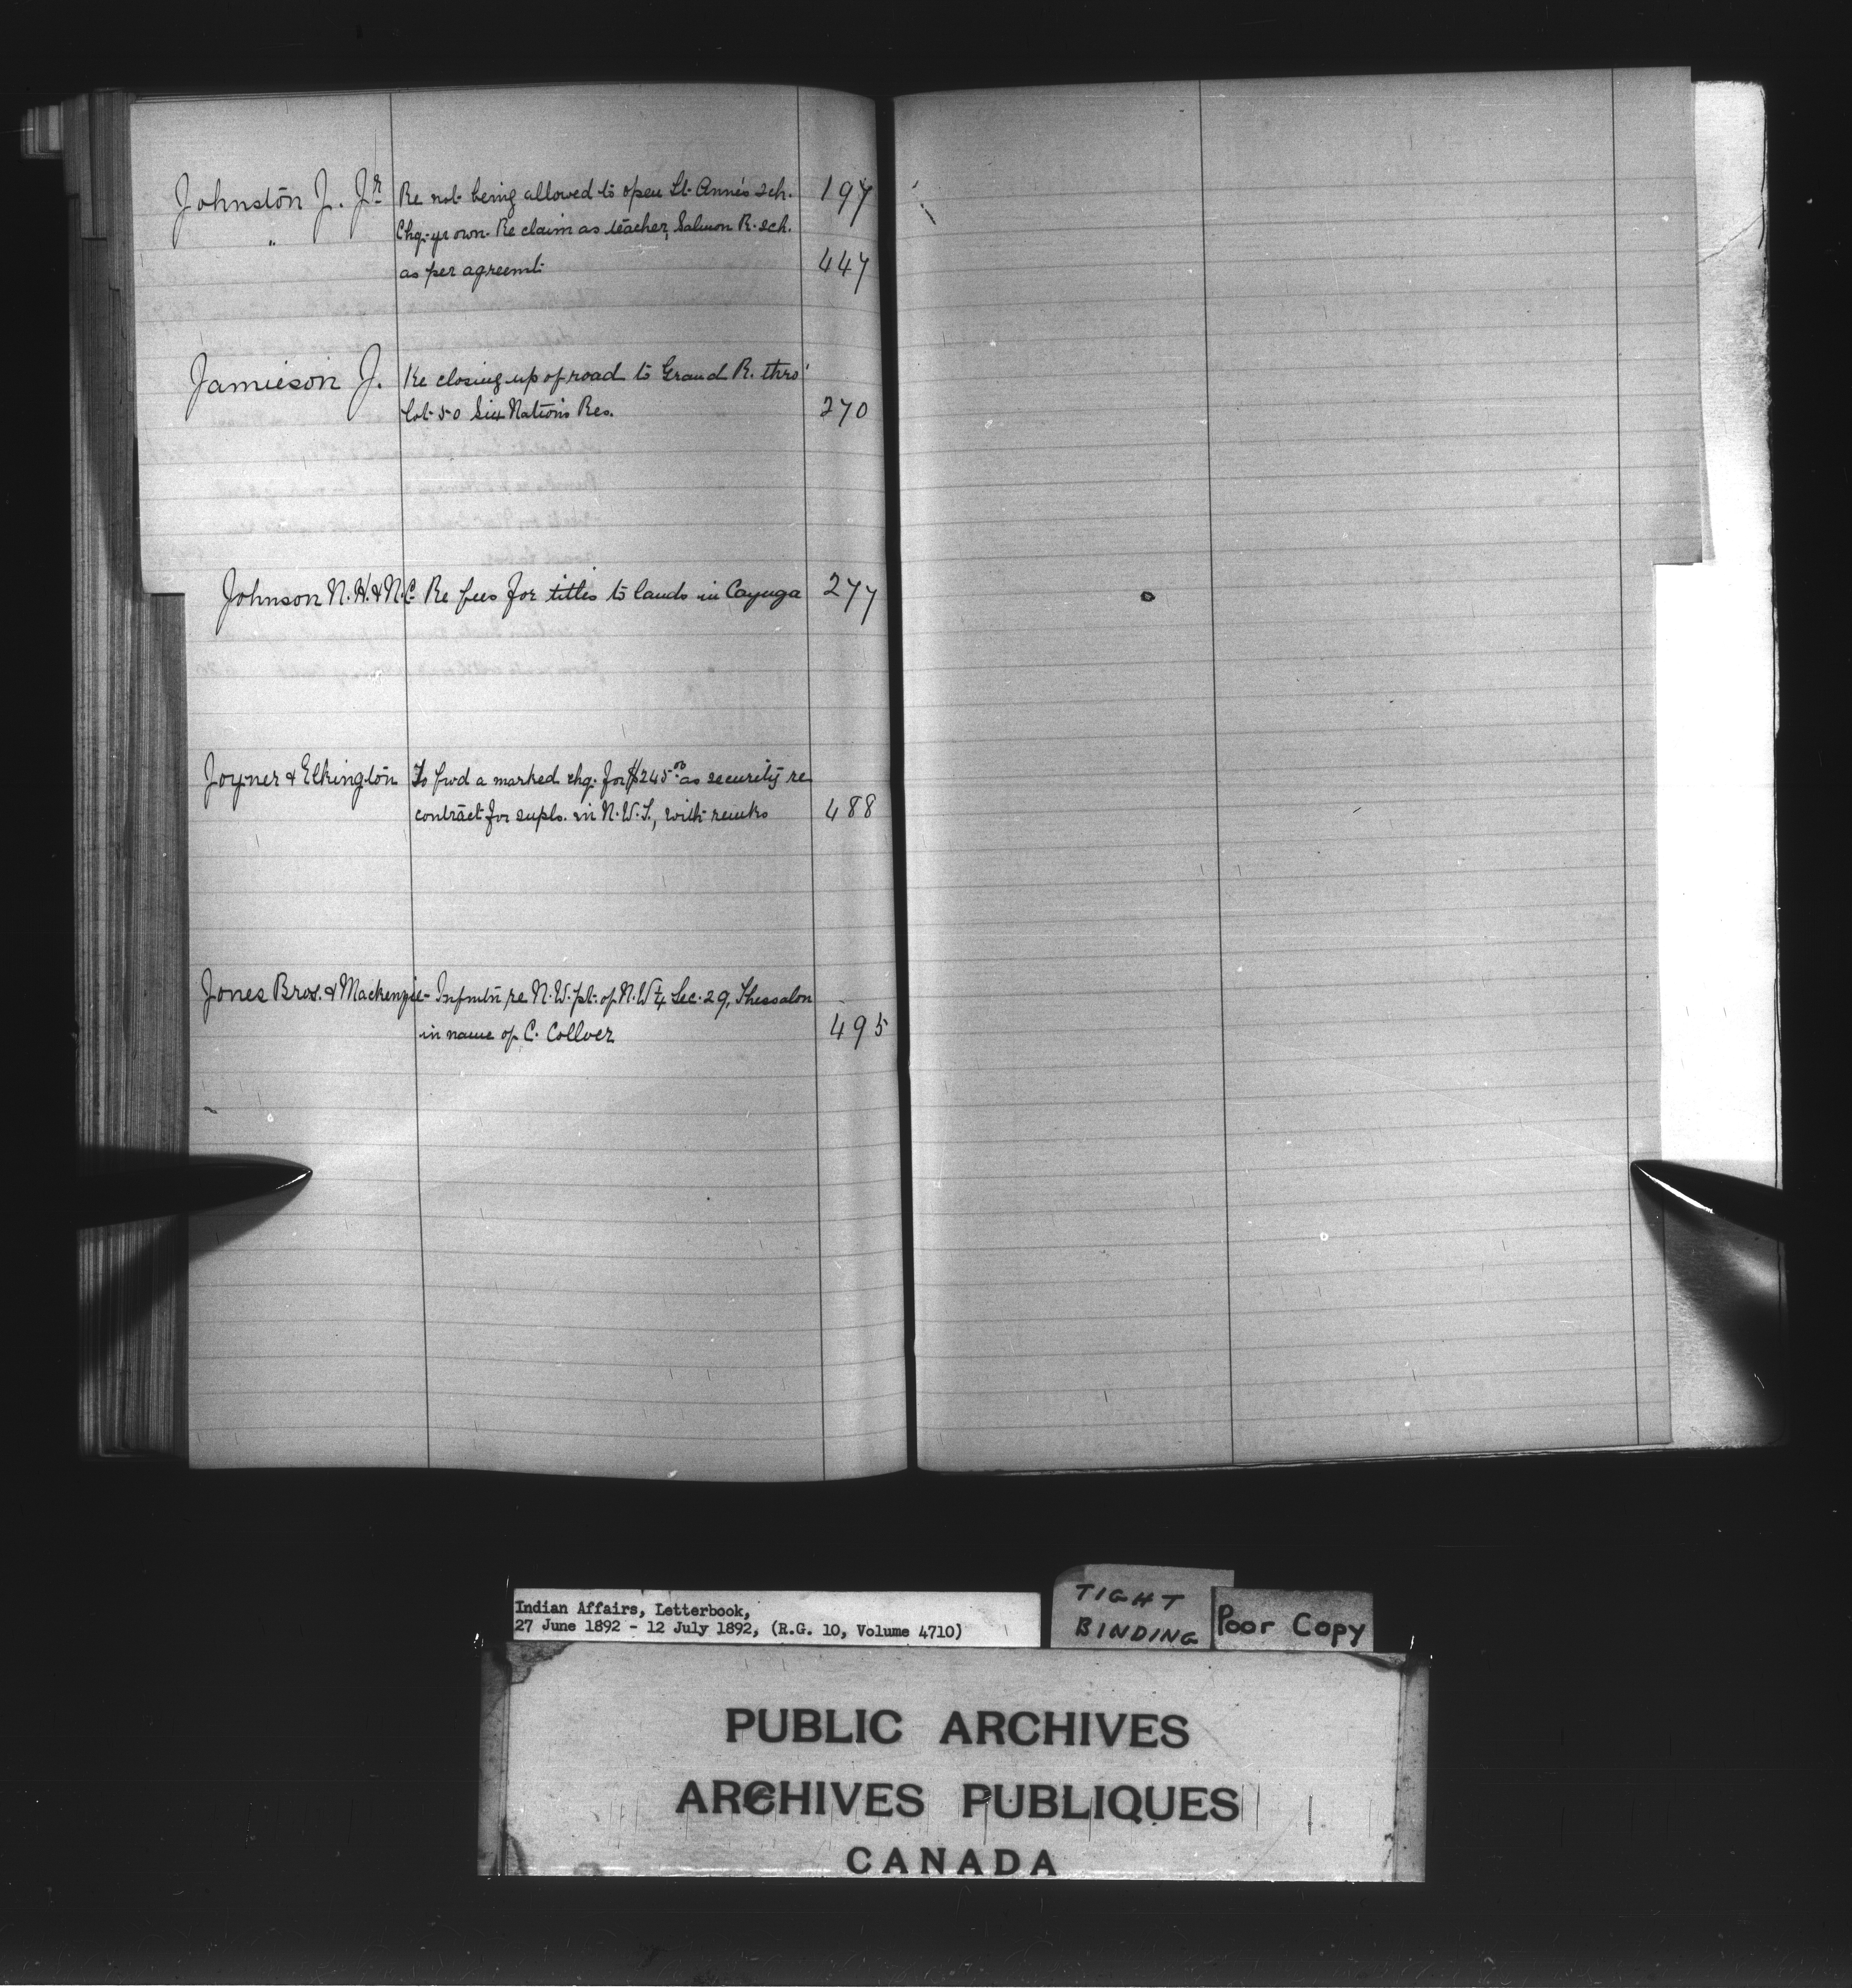 Johnston J. Jr Re not being allowed to open St. Anne's sch. 197
" Chq. yr own. Re claim as teacher, Salmon R. sch.
as per agreemt. 447
Jamieson J. Re closing up of road to Grand R. thro'
Lot 50 Six Nations Res. 270
Johnson N. H. & N. C. Re fees for titles to lands in Cayuga 277
Joyner & Elkington To fwd a marked chq. for $245.00 as security re
contract for supls. in N.W.T., with remks 488
Jones Bros. & Mackenzie - Infmtn re N.W. pt. of N.W¼ Sec. 29, Thessalon
in name of C. Collver 495
Indian Affairs, Letterbook,
27 June 1892 - 12 July 1892, (R.G. 10, Volume 4710)
TIGHT
BINDING
Poor Copy
PUBLIC ARCHIVES
ARCHIVES PUBLIQUES
CANADA